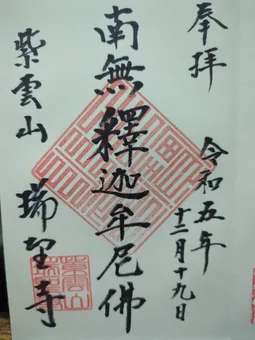 奉拝
令和五年
十二月十九日
南無釋迦牟尼佛
紫雲山
瑞聖寺